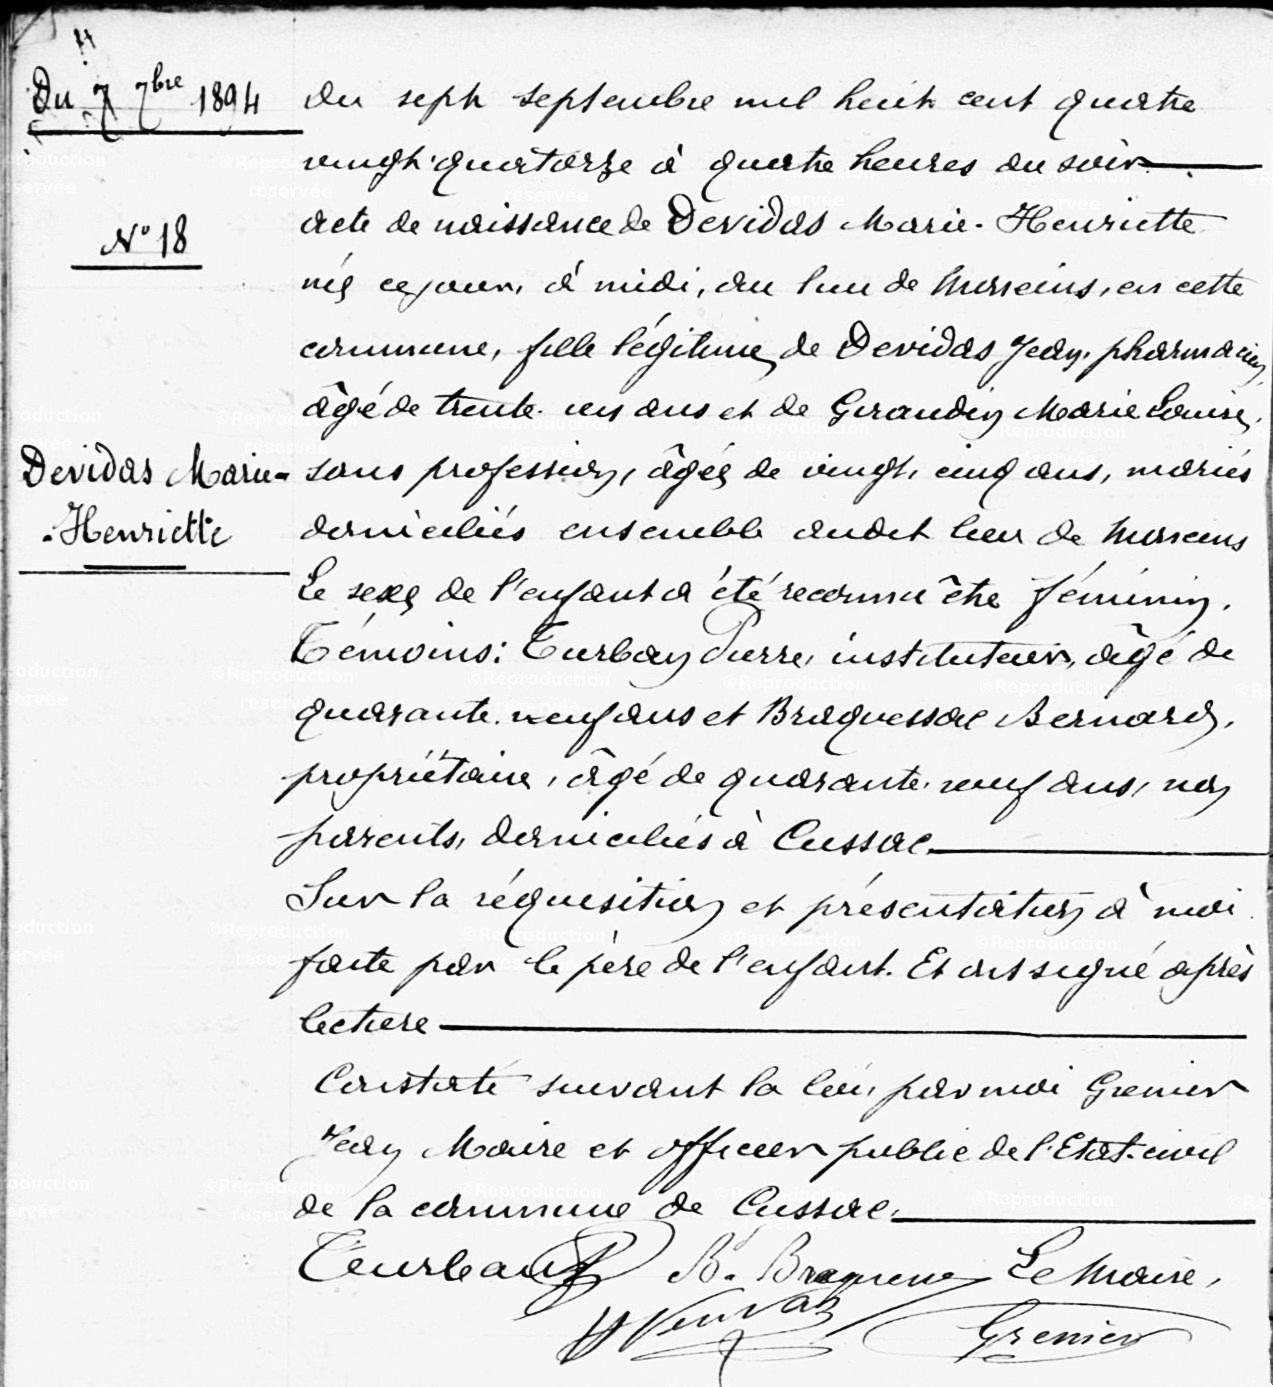 Du 7 7bre 1894
N° 18
Devidas Marie-
Henriette
Du sept septembre mil huit cent quatre
vingt quatorze à quatre heures du soir
acte de naissance de Devidas Marie-Henriette
née ce jour, à midi, au lieu de en cette
commune, fille légitime de Devidas Jean, pharmacien,
âgé de trente un ans et de Giraudin Marie Louise,
sans profession, âgée de vingt cinq ans, mariés
domiciliés ensemble audit lieu de
Le sexe de l'enfant a été reconnu être féminin.
Témoins: Pierre, instituteur, âgé de
quarante neuf ans et Braquessac Bernard,
propriétaire, âgé de quarante neuf ans, non
parents, domiciliés à Cussac
Sur la réquisition et présentation à moi
faite par le père de l'enfant. Et ont signé après
lecture
Constaté suivant la loi, par moi Grenier
Jean Maire et officier public de l'Etat-civil
de la commune de Cussac.
B. Le Maire,
Grenier
©Reproduction
réservée